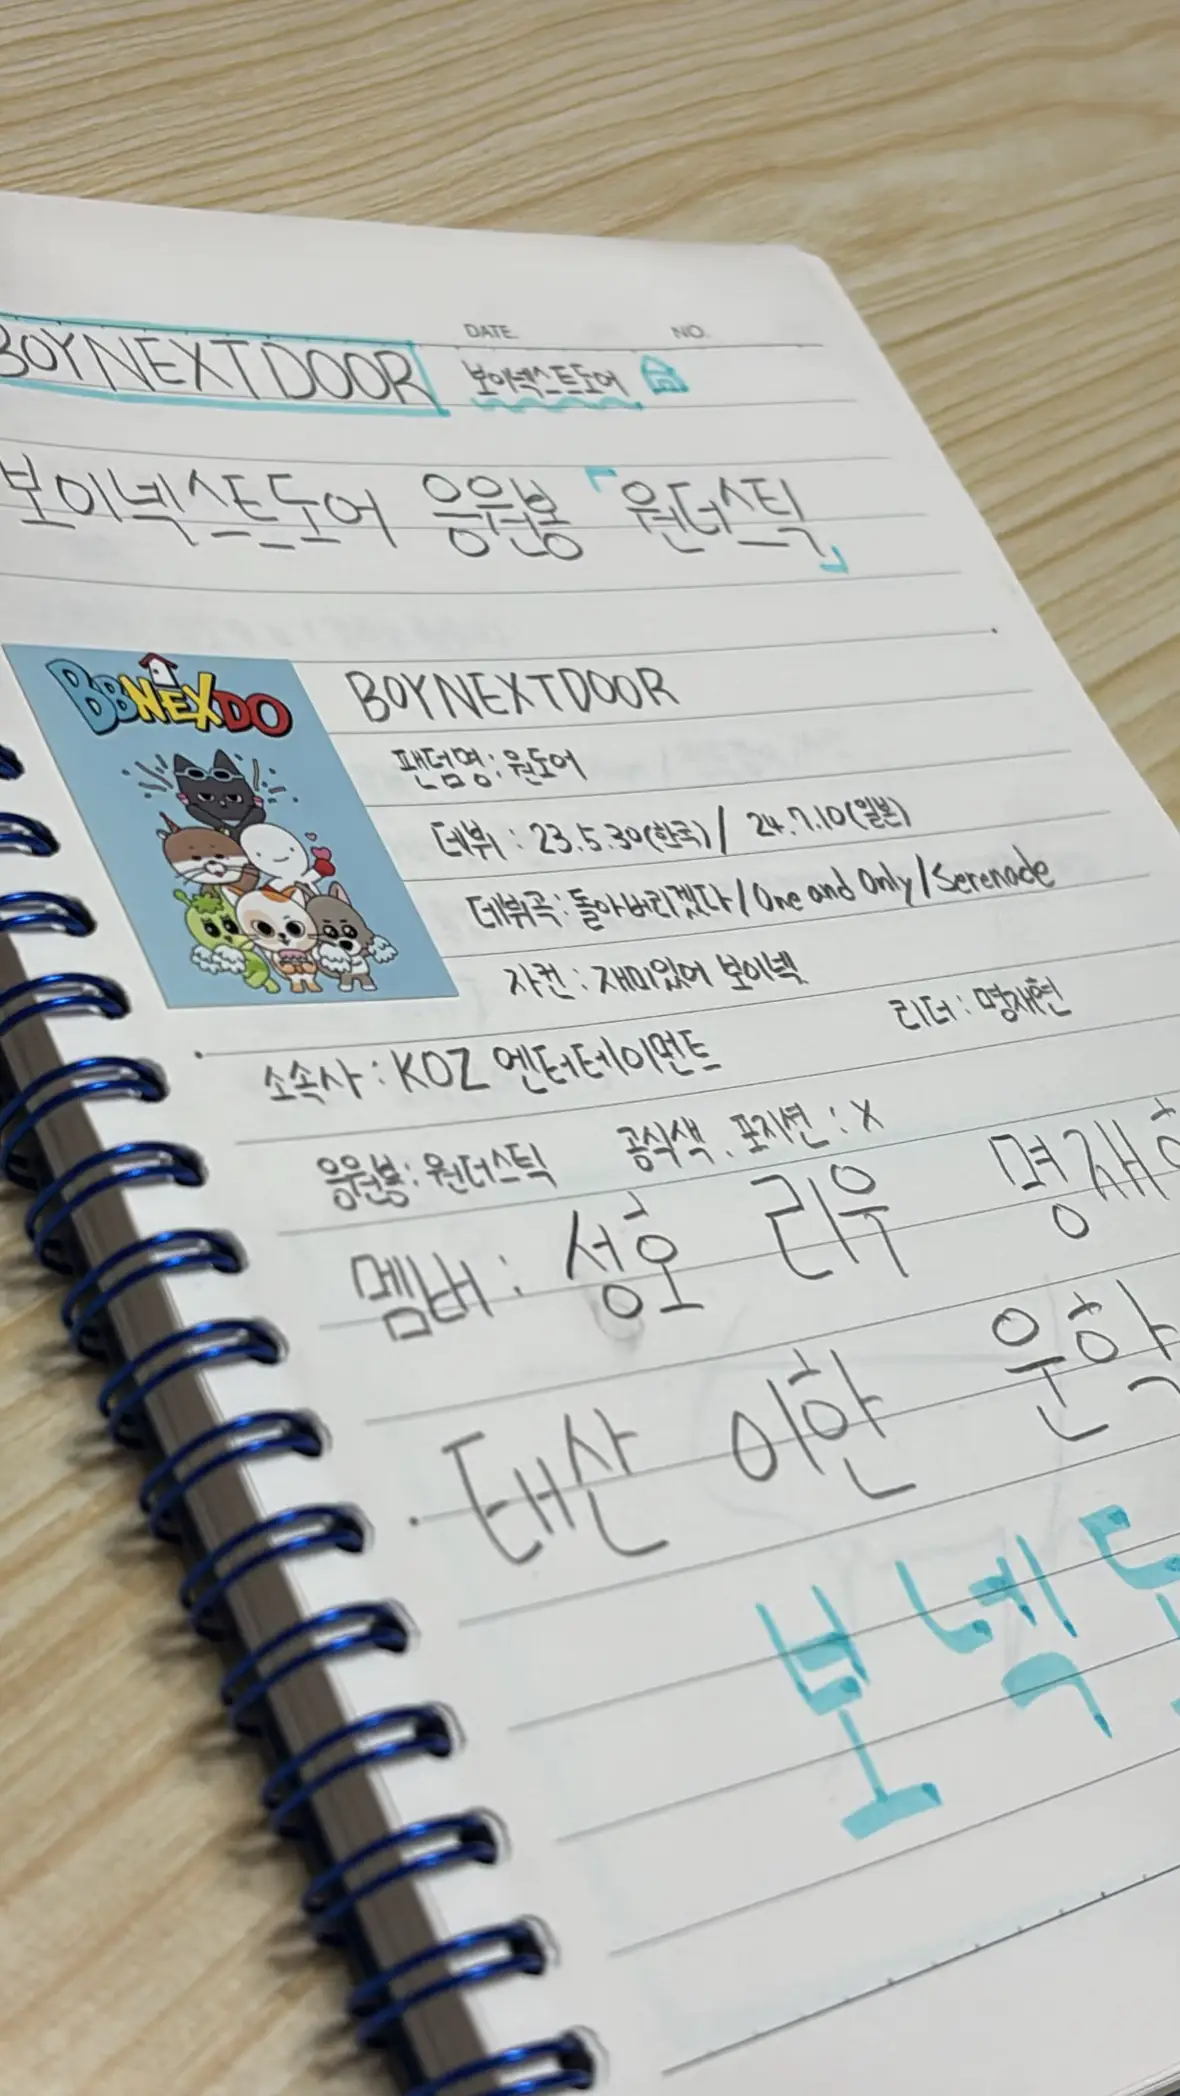 DATE. NO.
BOYNEXTDOOR 보이넥스트도어
보이넥스트도어 응원봉 「원더스틱」
BBNEXDO
BOYNEXTDOOR
팬덤명: 원도어
데뷔 : 23.5.30(한국) / 24.7.10(일본)
데뷔곡: 돌아버리겠다/One and Only/Serenade
자컨 : 재미있어 보이넥
리더 : 명재현
소속사 : KOZ 엔터테이먼트
응원봉: 원더스틱 공식색, 포지션 : X
멤버 : 성호 리우 명재
태산 이한 운학
보넥